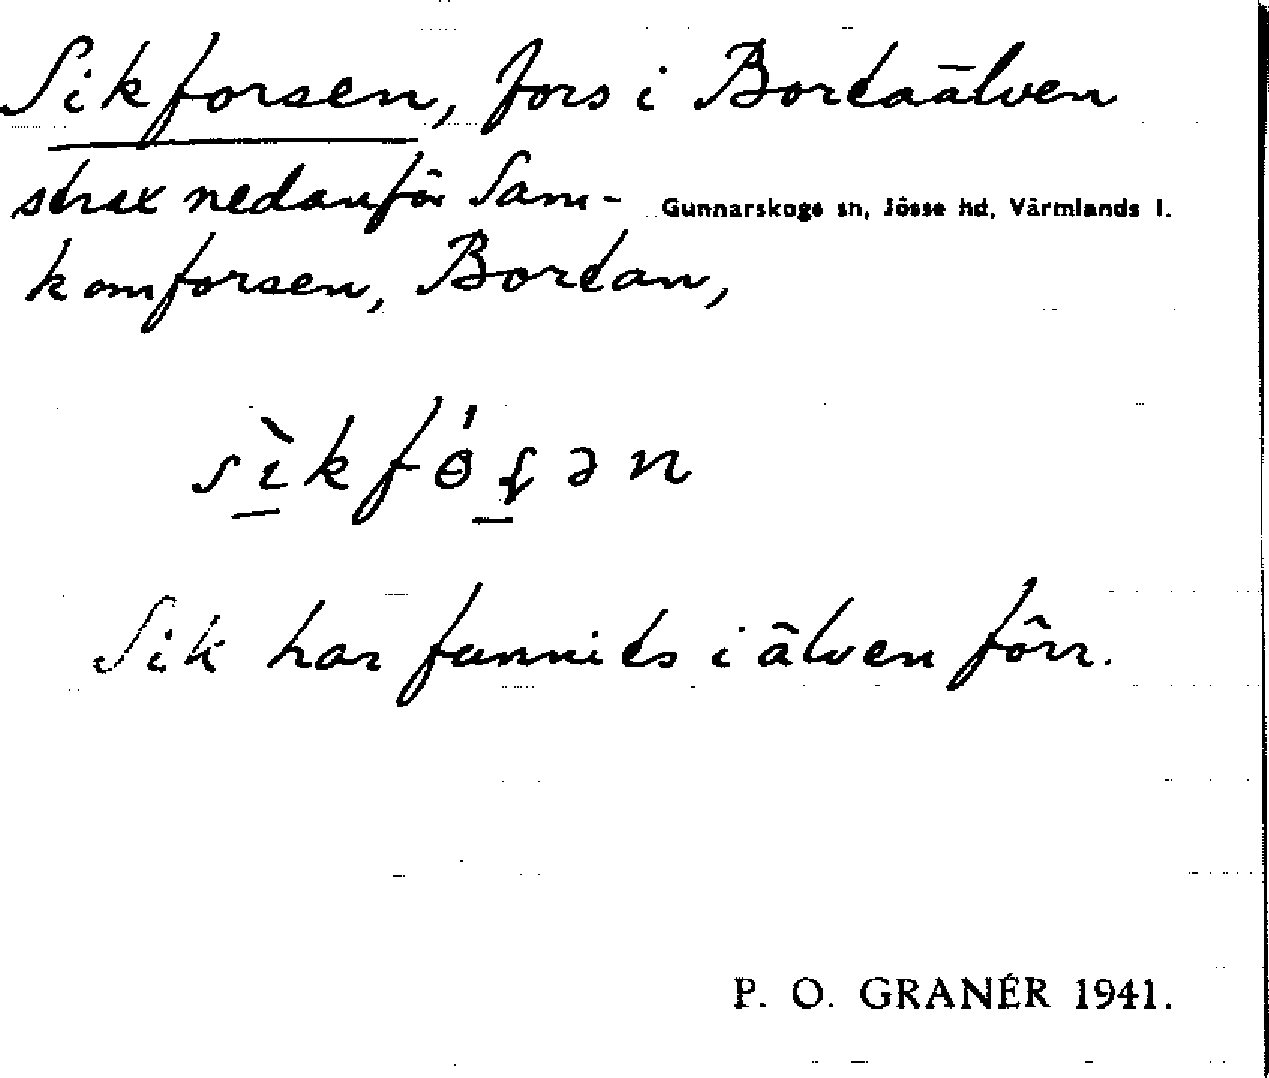 Sikforsen, fors i Bortaälven
strax nedanför Sam-
Gunnarskogs sn, Jösse hd, Värmlands l.
komforsen, Bortan,
Sik har funnits i älven förr.
P. O. GRANÉR 1941.